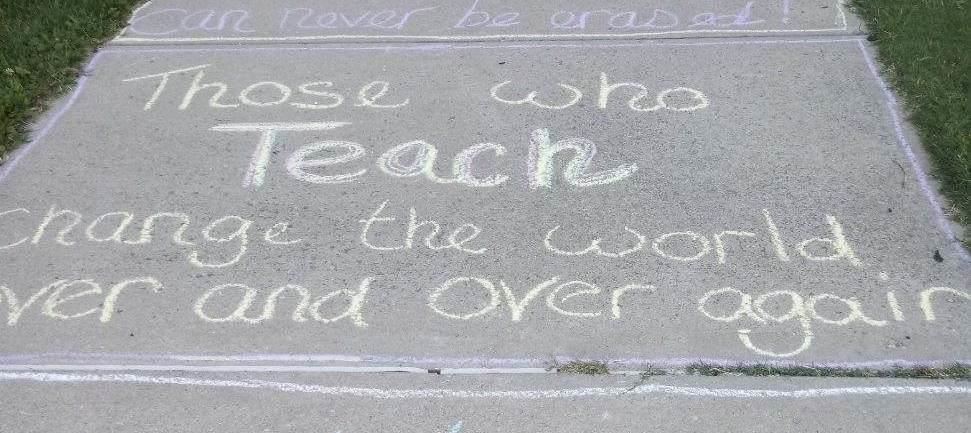 Can never be erased!
Those who
Teach
change the world
ver and over again